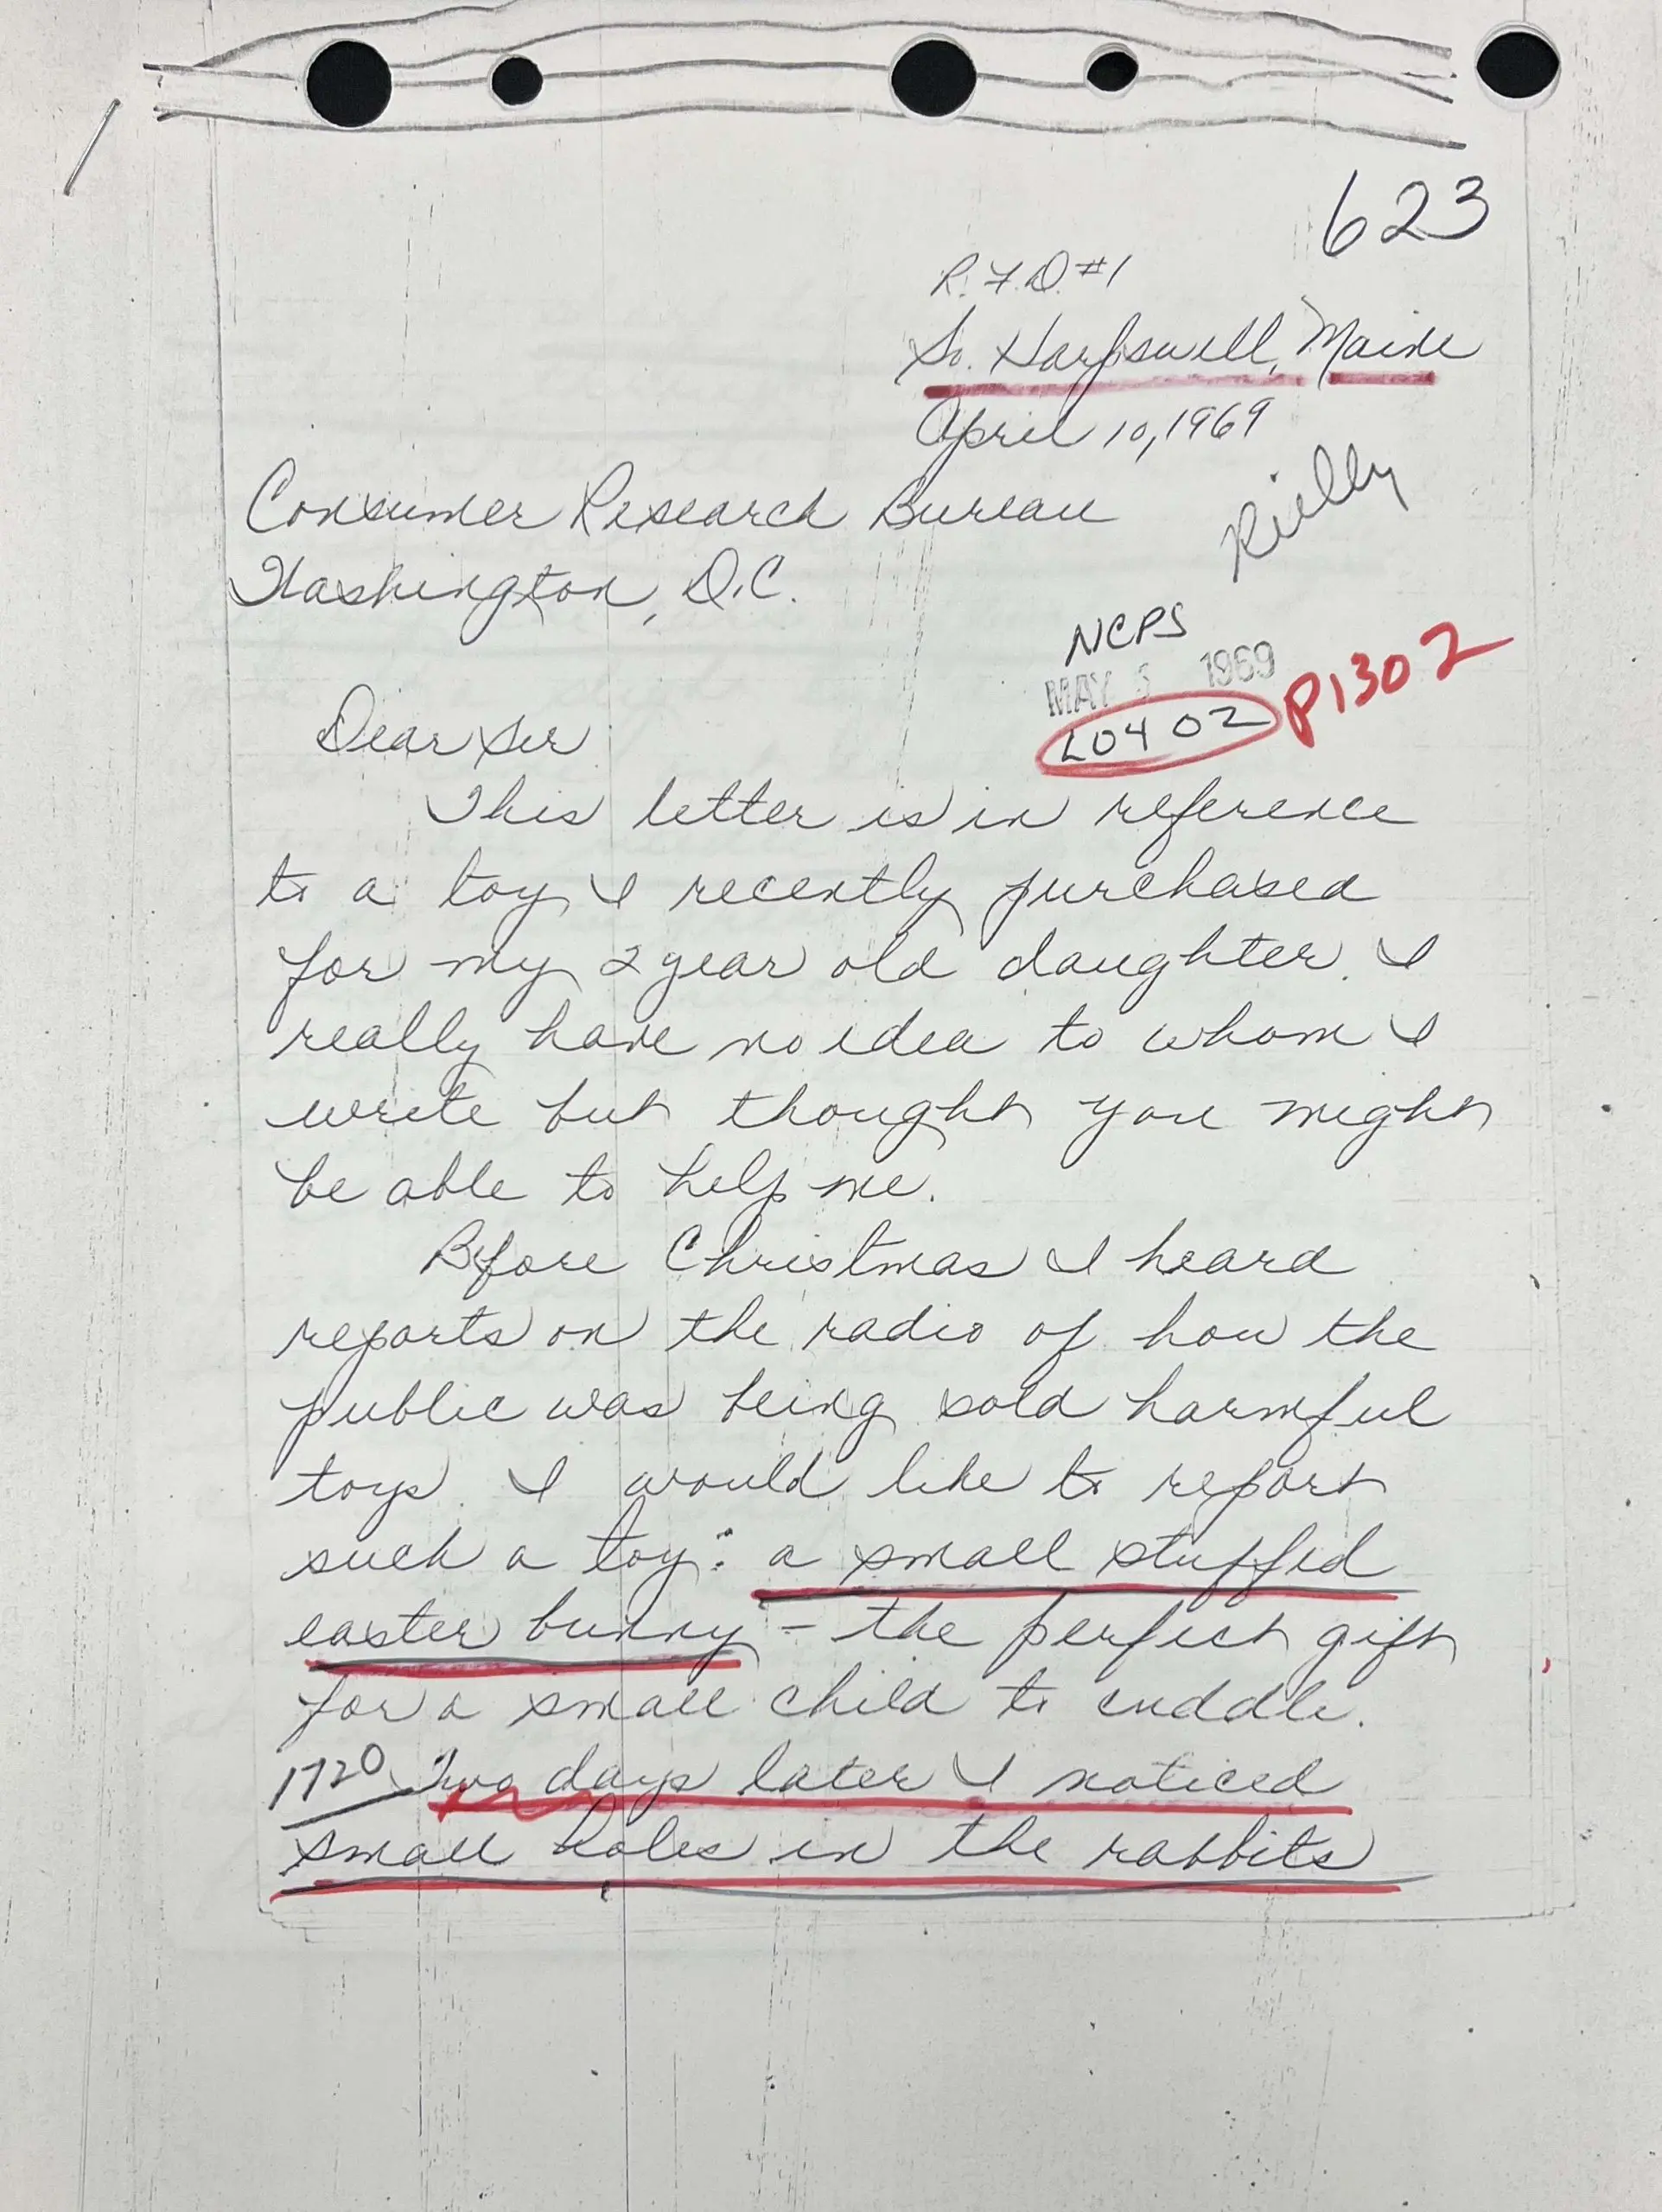 623
R.F.D. #1
So. Harpswell, Maine
April 10, 1969
Rielly
Consumer Research Bureau
Washington, D.C.
NCPS
MAY 5 1969
L0402 P1302
Dear Sir
This letter is in reference
to a toy I recently purchased
for my 2 year old daughter. I
really have no idea to whom I
write but thought you might
be able to help me.
Before Christmas I heard
reports on the radio of how the
public was being sold harmful
toys. I would like to report
such a toy: a small stuffed
easter bunny - the perfect gift
for a small child to cuddle.
1720 Two days later I noticed
small holes in the rabbits